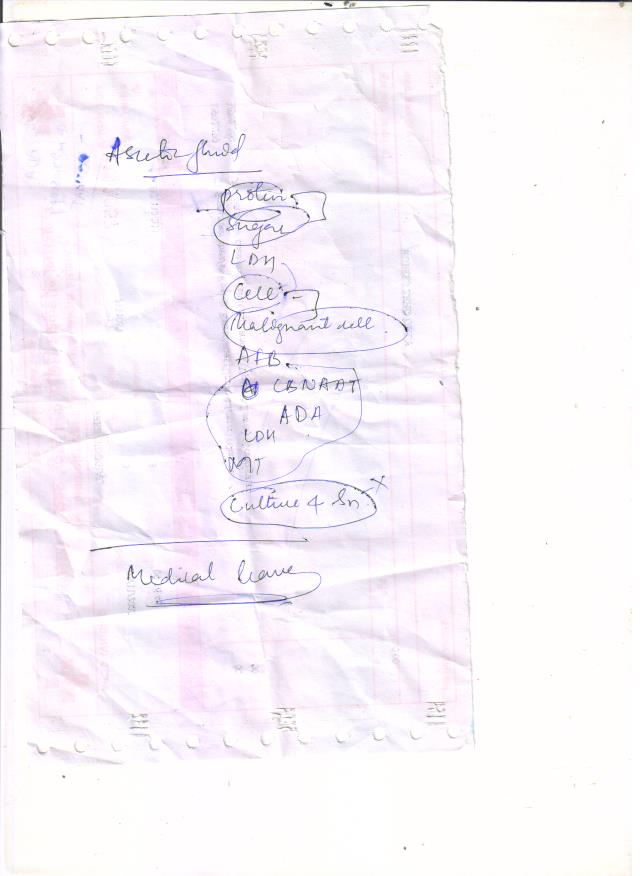 Ascitic fluid
protein
Sugar
LDH
Cell
Malignant cell
AFB
CBNAAT
ADA
LDH
MT
Culture & Sn
Medical leave